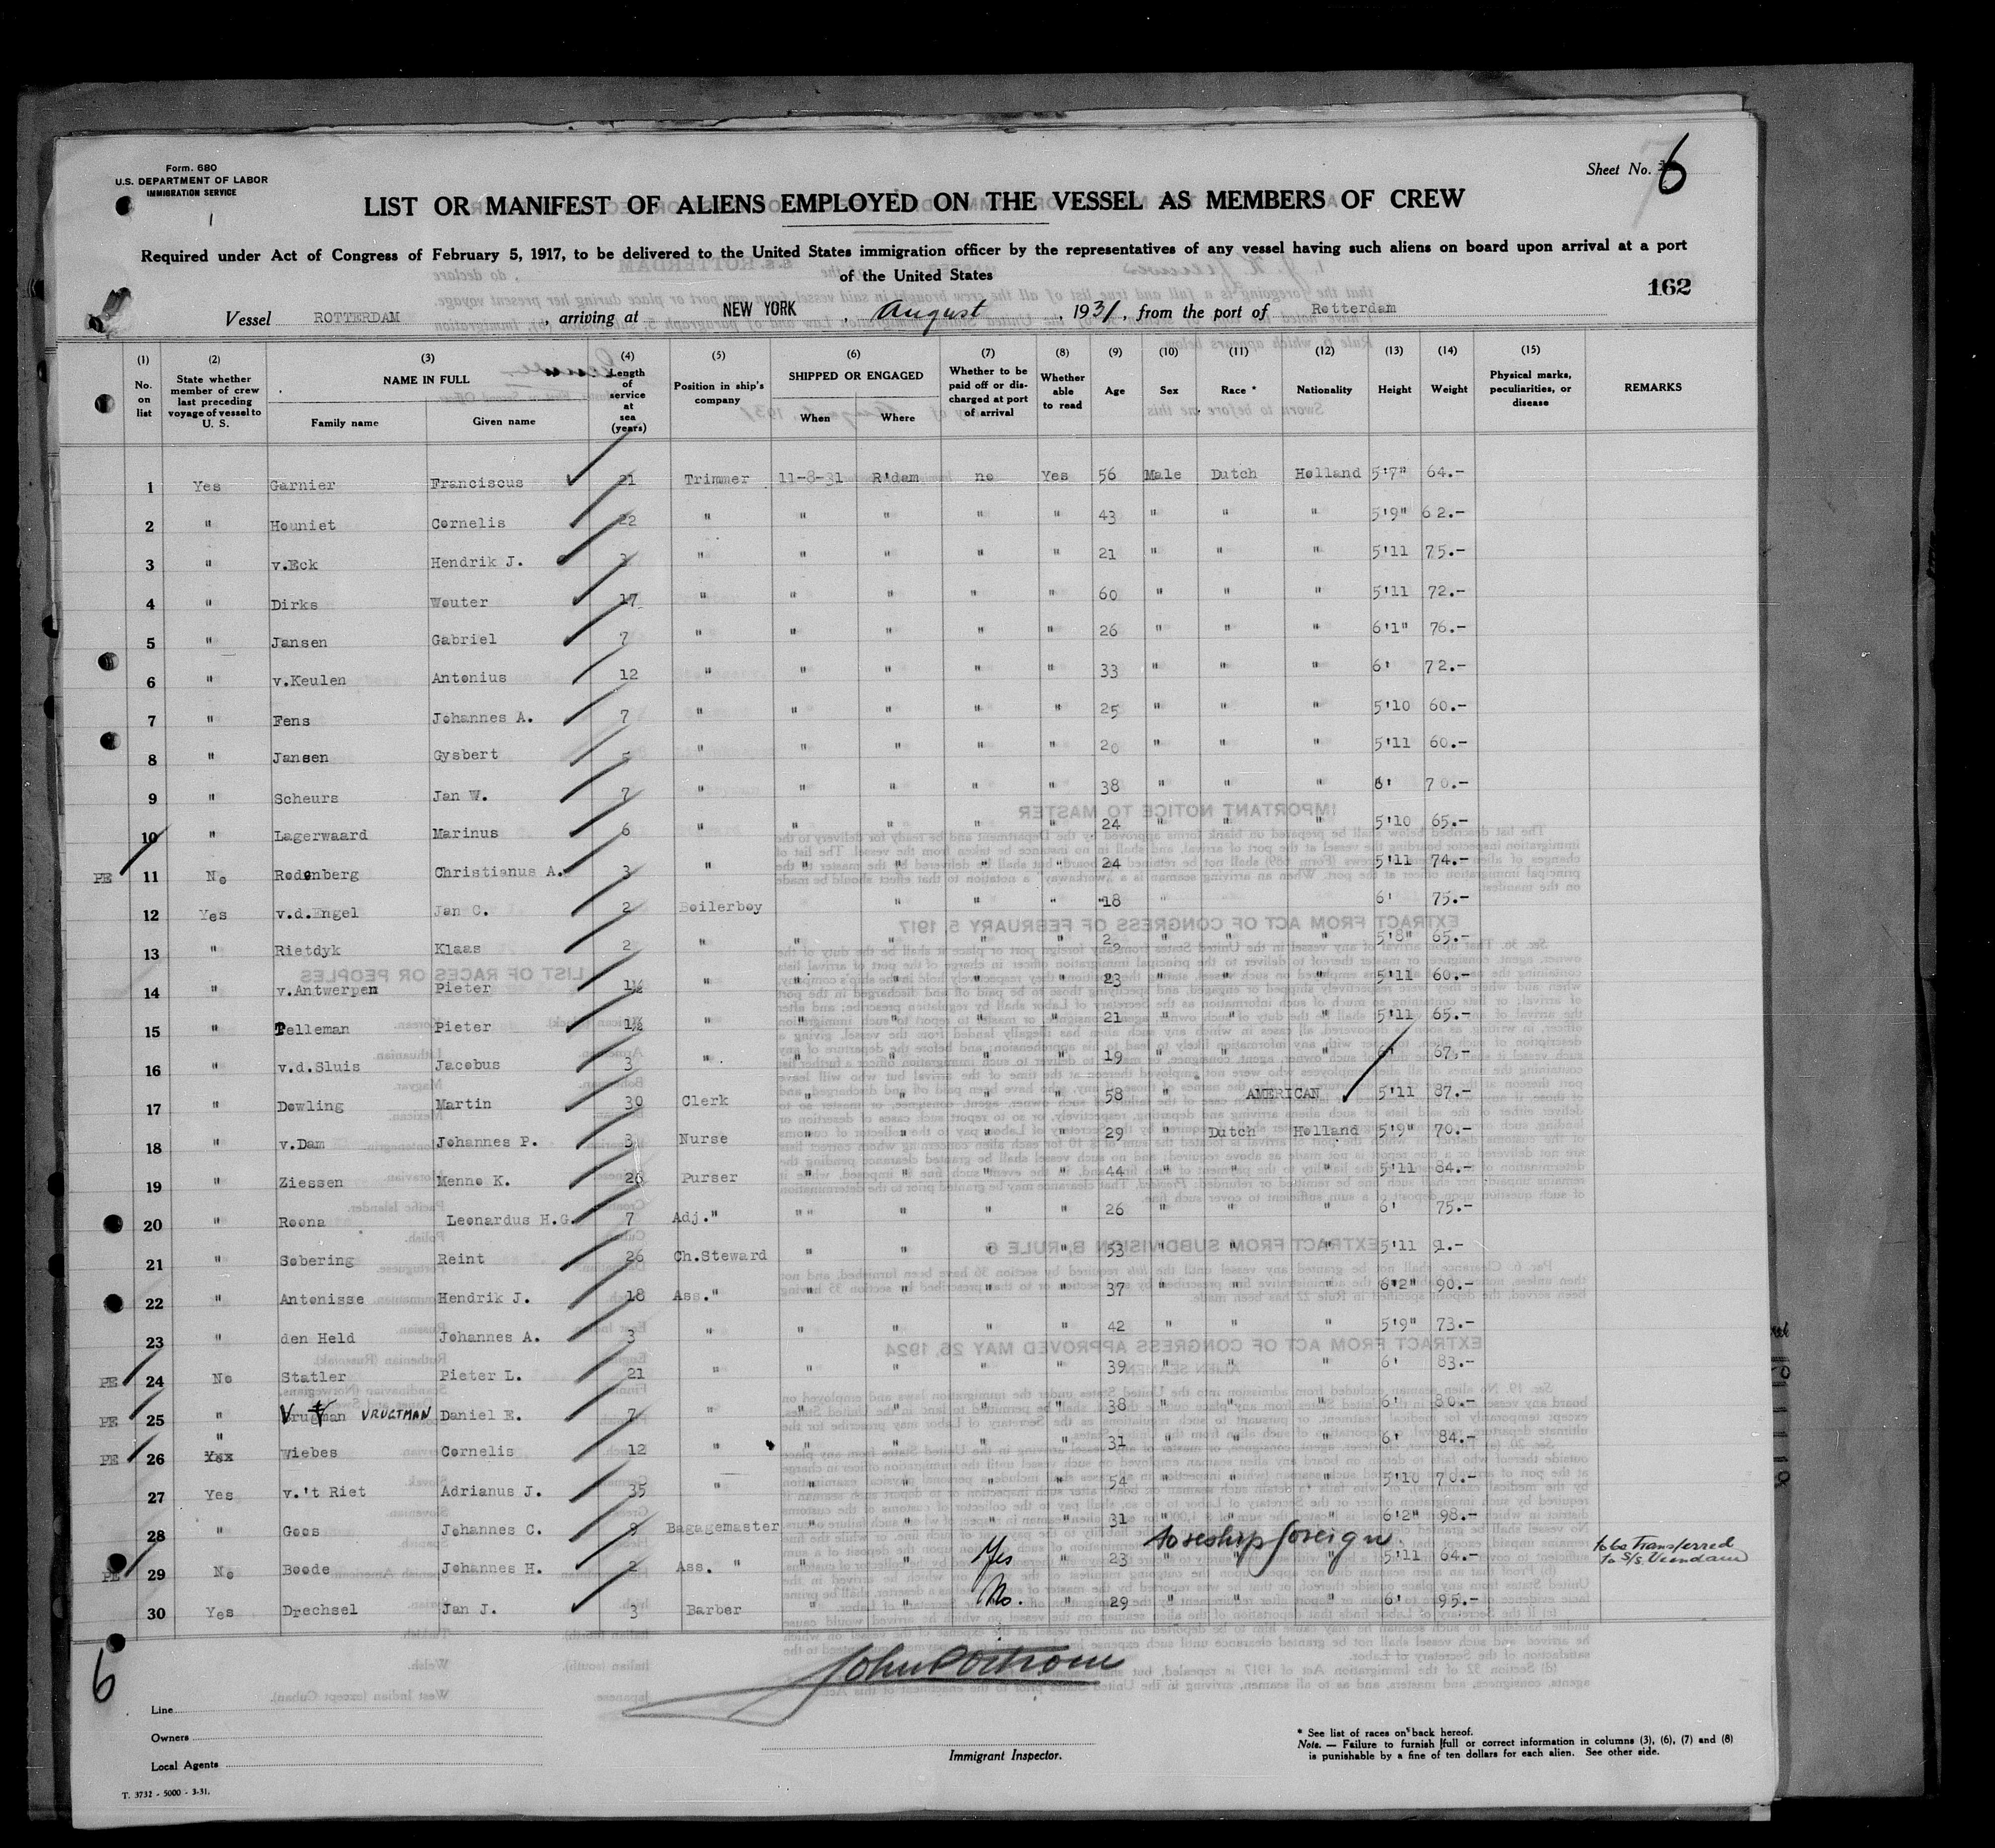 Form. 680
U.S. DEPARTMENT OF LABOR
IMMIGRATION SERVICE
Sheet No. 6
LIST OR MANIFEST OF ALIENS EMPLOYED ON THE VESSEL AS MEMBERS OF CREW
Required under Act of Congress of February 5, 1917, to be delivered to the United States immigration officer by the representatives of any vessel having such aliens on board upon arrival at a port
of the United States
162
Vessel ROTTERDAM, arriving at NEW YORK, August, 1931, from the port of Rotterdam
(1) (2) (3) (4) (5) (6) (7) (8) (9) (10) (11) (12) (13) (14) (15)
No. on list
State whether member of crew last preceding voyage of vessel to U. S.
NAME IN FULL
Family name Given name
Length of service at sea (years)
Position in ship's company
SHIPPED OR ENGAGED
When Where
Whether to be paid off or discharged at port of arrival
Whether able to read
Age Sex Race * Nationality Height Weight
Physical marks, peculiarities, or disease
REMARKS
1 Yes Garnier Franciscus 21 Trimmer 11-8-31 R'dam no Yes 56 Male Dutch Holland 5'7" 64.-
2 " Houniet Cornelis 22 " " " " " 43 " " " 5'9" 62.-
3 " v.Eck Hendrik J. 3 " " " " " 21 " " " 5'11 75.-
4 " Dirks Wouter 17 " " " " " 60 " " " 5'11 72.-
5 " Jansen Gabriel 7 " " " " " 26 " " " 6'1" 76.-
6 " v.Keulen Antonius 12 " " " " " 33 " " " 6' 72.-
7 " Fens Johannes A. 7 " " " " " 25 " " " 5'10 60.-
8 " Jansen Gysbert 5 " " " " " 20 " " " 5'11 60.-
9 " Scheurs Jan W. 7 " " " " " 38 " " " 6' 70.-
10 " Lagerwaard Marinus 6 " " " " " 24 " " " 5'10 65.-
PE 11 No Rodenberg Christianus A. 3 " " " " " 24 " " " 5'11 74.-
12 Yes v.d.Engel Jan C. 2 Boilerboy " " " 18 " 6' 75.-
13 " Rietdyk Klaas 2 " " " " " " " " 5'8" 65.-
14 " v.Antwerpen Pieter 1½ " " " " " 23 " " " 5'11 60.-
15 " Telleman Pieter 1½ " " " " " 21 " " " 5'11 65.-
16 " v.d.Sluis Jacobus 3 " " " " " 19 " " " 6' 67.-
17 " Dowling Martin 30 Clerk " " " " 58 " AMERICAN 5'11 87.-
18 " v.Dam Johannes P. 3 Nurse " " " " 29 " Dutch Holland 5'9" 70.-
19 " Ziessen Menno K. 26 Purser " " " " 44 " " " 5'11 84.-
20 " Roona Leonardus H.G. 7 Adj." " " " " 26 " " " 6' 75.-
21 " Sobering Reint 26 Ch.Steward " " " " 53 " " " 5'11 91.-
22 " Antonisse Hendrik J. 18 Ass." " " " " 37 " " " 6'2" 90.-
23 " den Held Johannes A. 3 " " " " " 42 " " " 5'9" 73.-
PE 24 No Statler Pieter L. 21 " " " " " 39 " " " 6' 83.-
PE 25 " VRUGTMAN Daniel E. 7 " " " " " 38 " " " 6' 80.-
PE 26 " Wiebes Cornelis 12 " " " " " 31 " " " 6' 84.-
27 Yes v.'t Riet Adrianus J. 35 " " " " " 54 " " " 5'10 70.-
28 " Goos Johannes C. 9 Bagagemaster " " " " 31 " " " 6'2" 98.-
to reship foreign
PE 29 No Boode Johannes H. 2 Ass. " " " Yes " 23 " " " 5'11 64.- to be Transferred to S/s. Veendam
30 Yes Drechsel Jan J. 3 Barber " " No. " 29 " " " 6' 95.-
6
Line
Owners
Local Agents
Immigrant Inspector.
* See list of races on back hereof.
Note. — Failure to furnish full or correct information in columns (3), (6), (7) and (8)
is punishable by a fine of ten dollars for each alien. See other side.
T. 3732 - 5000 - 3-31.